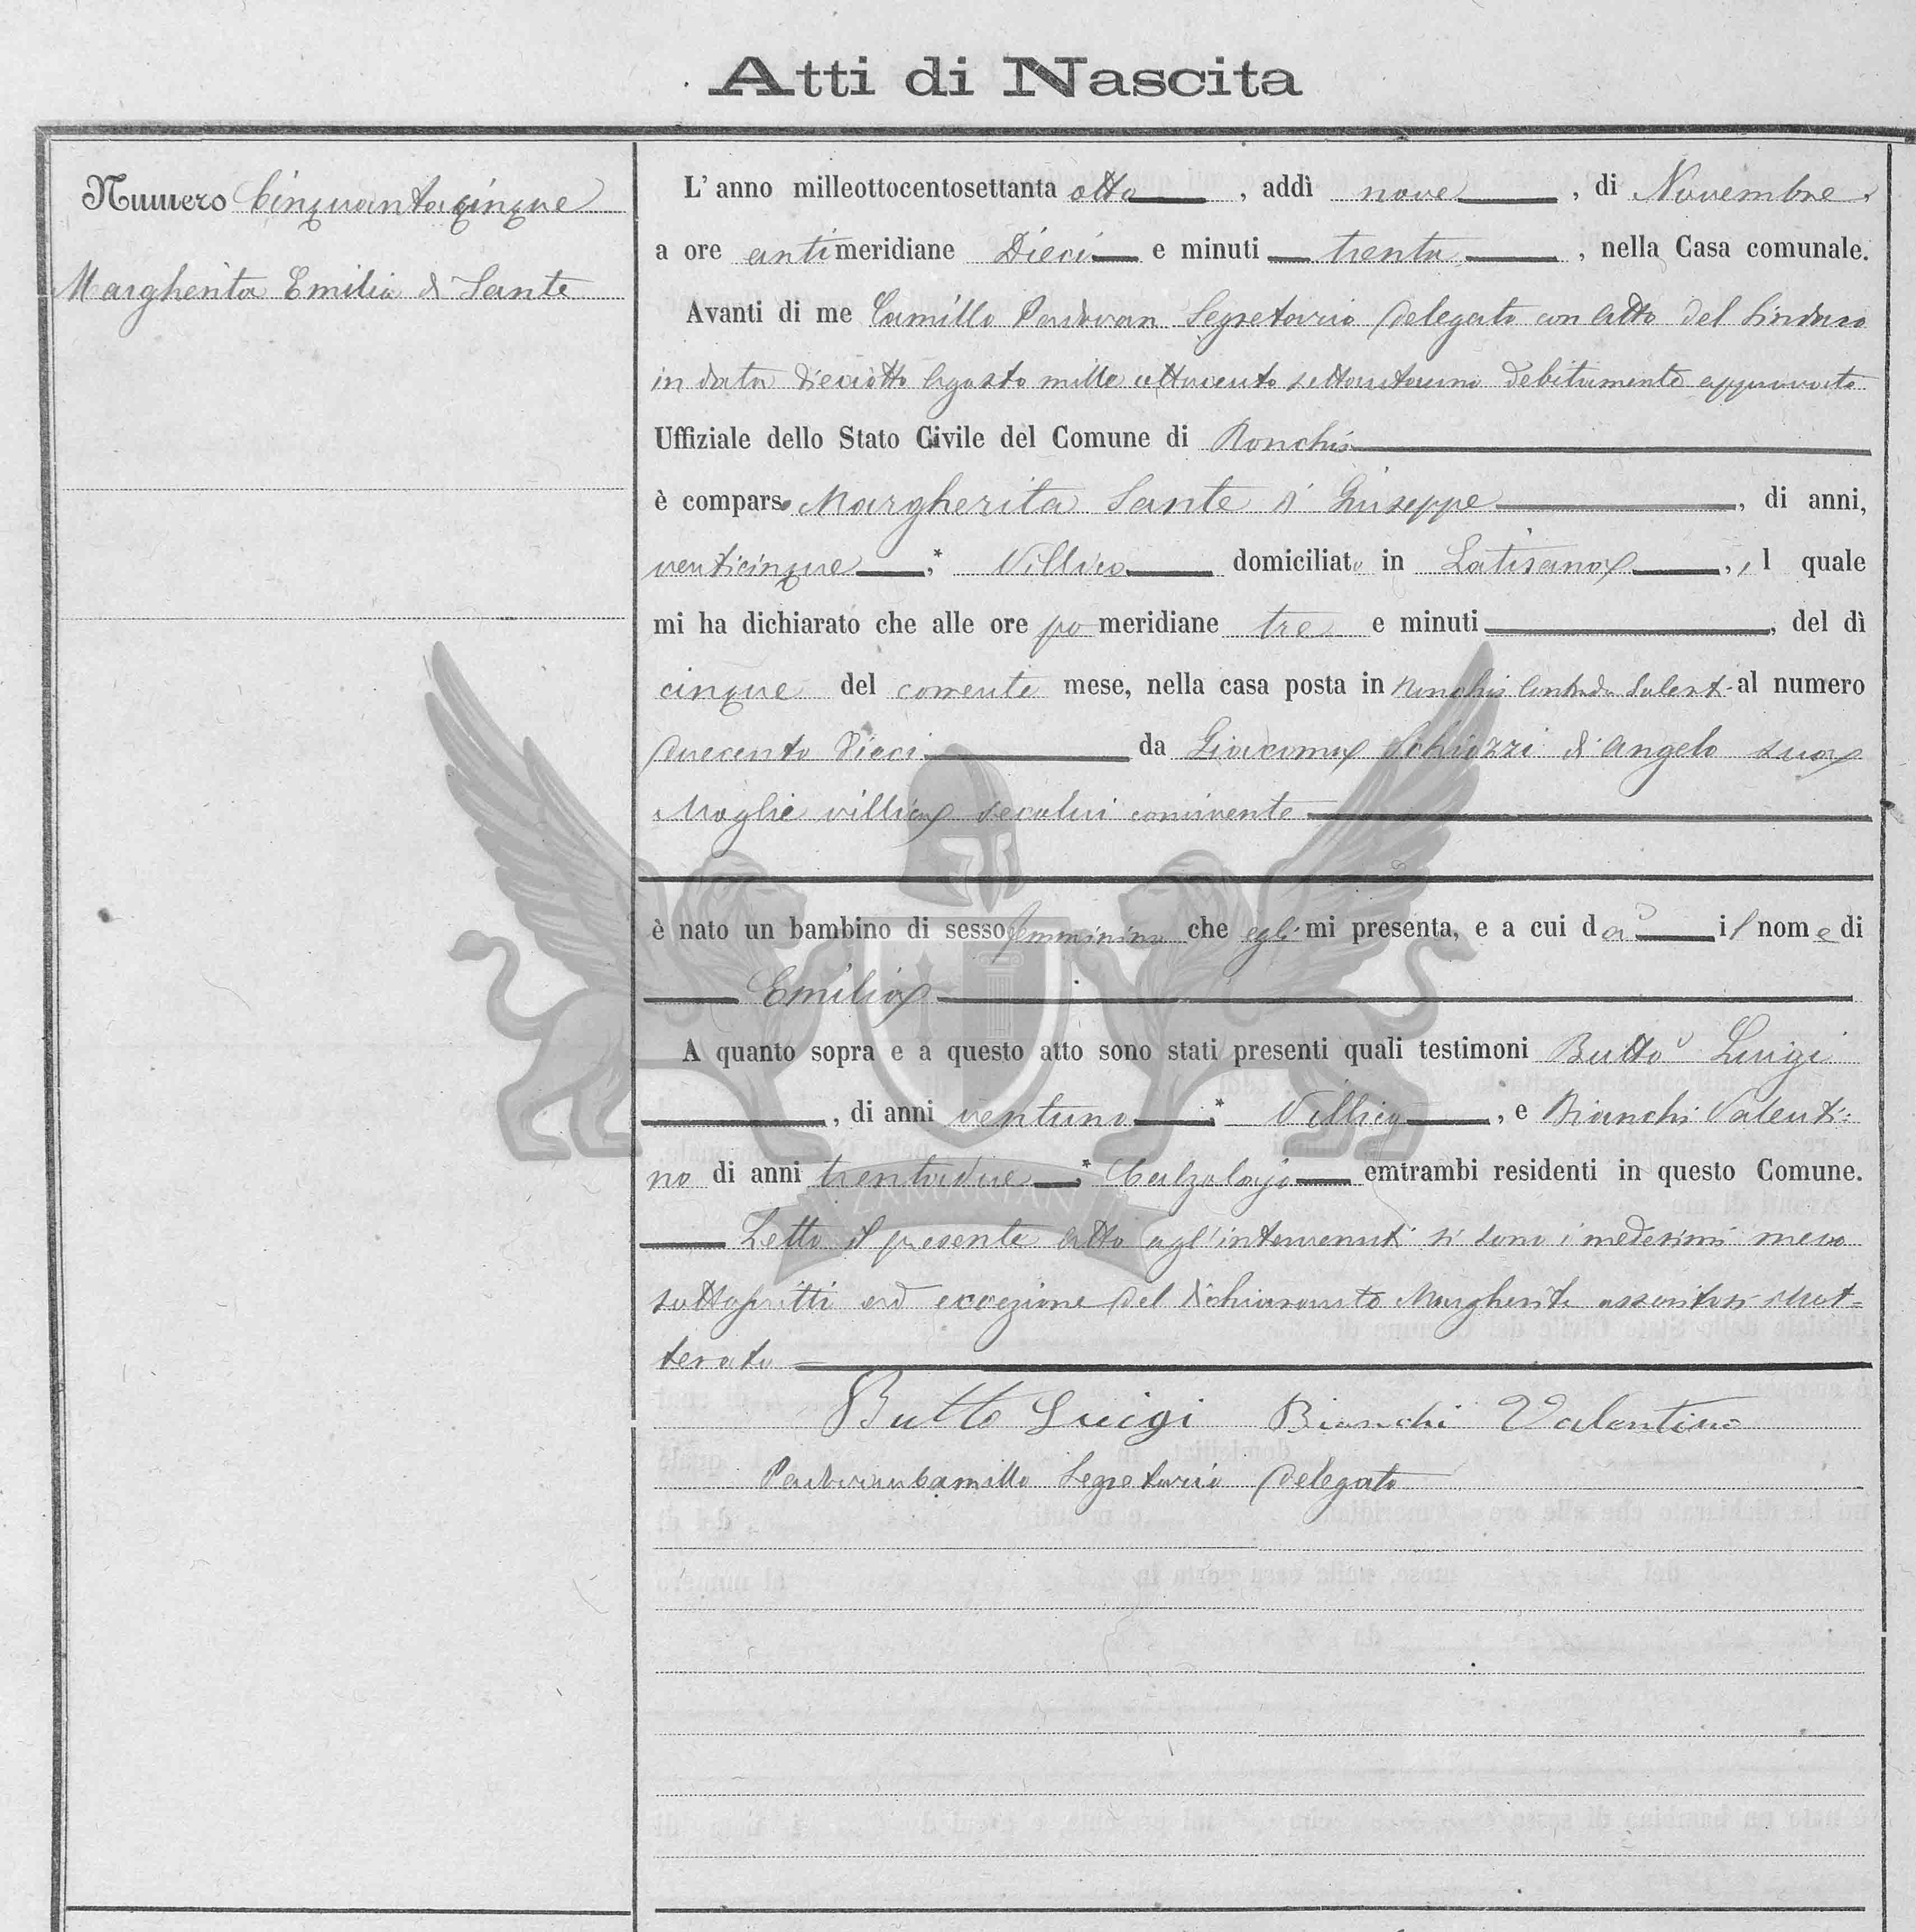 Atti di Nascita
Numero Cinquantacinque
Margherita Emilia di Sante
L' anno milleottocentosettanta otto , addì nove , di Novembre
a ore antimeridiane Dieci e minuti trenta , nella Casa comunale.
Avanti di me Camillo Padovan Segretario Delegato con Atto del Sindaco
in data dieciotto Agosto mille ottocento settantauno debitamente approvato
Uffiziale dello Stato Civile del Comune di Ronchis
è comparso Margherita Sante di Giuseppe , di anni,
venticinque ;* Villico domiciliato in Latisana , il quale
mi ha dichiarato che alle ore po meridiane tre e minuti , del dì
cinque del corrente mese, nella casa posta in Ronchis Contrada al numero
Duecento Dieci da Giacoma Schiozzi di Angelo sua
Moglie villica secolui convivente
è nato un bambino di sesso femminino che egli mi presenta, e a cui dà il nome di
Emilia
A quanto sopra e a questo atto sono stati presenti quali testimoni Buttò Luigi
, di anni ventuno ;* Villico , e Bianchi Valenti-
no di anni trentadue ;* Calzolajo emtrambi residenti in questo Comune.
Letto il presente Atto agl'intervenuti si sono i medesimi meco
sottoscritti ad eccezione del dichiarante Margherita illet=
terato
Butto Luigi Bianchi Valentino
Padovan Camillo Segretario Delegato